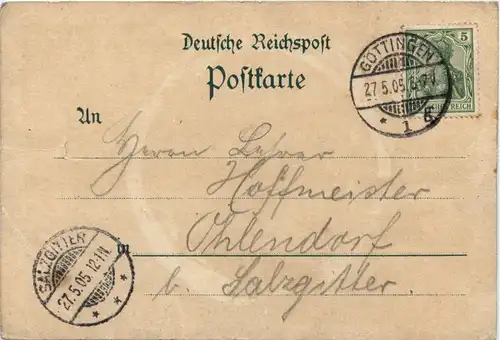 Deutsche Reichspost
Postkarte
5
GÖTTINGEN
27.5.05.
* 1
REICH
An
Herrn Lehrer
Hoffmeister
in Ohlendorf
b. Salzgitter
SALZGITTER
27.5.05.12-1N.
* *